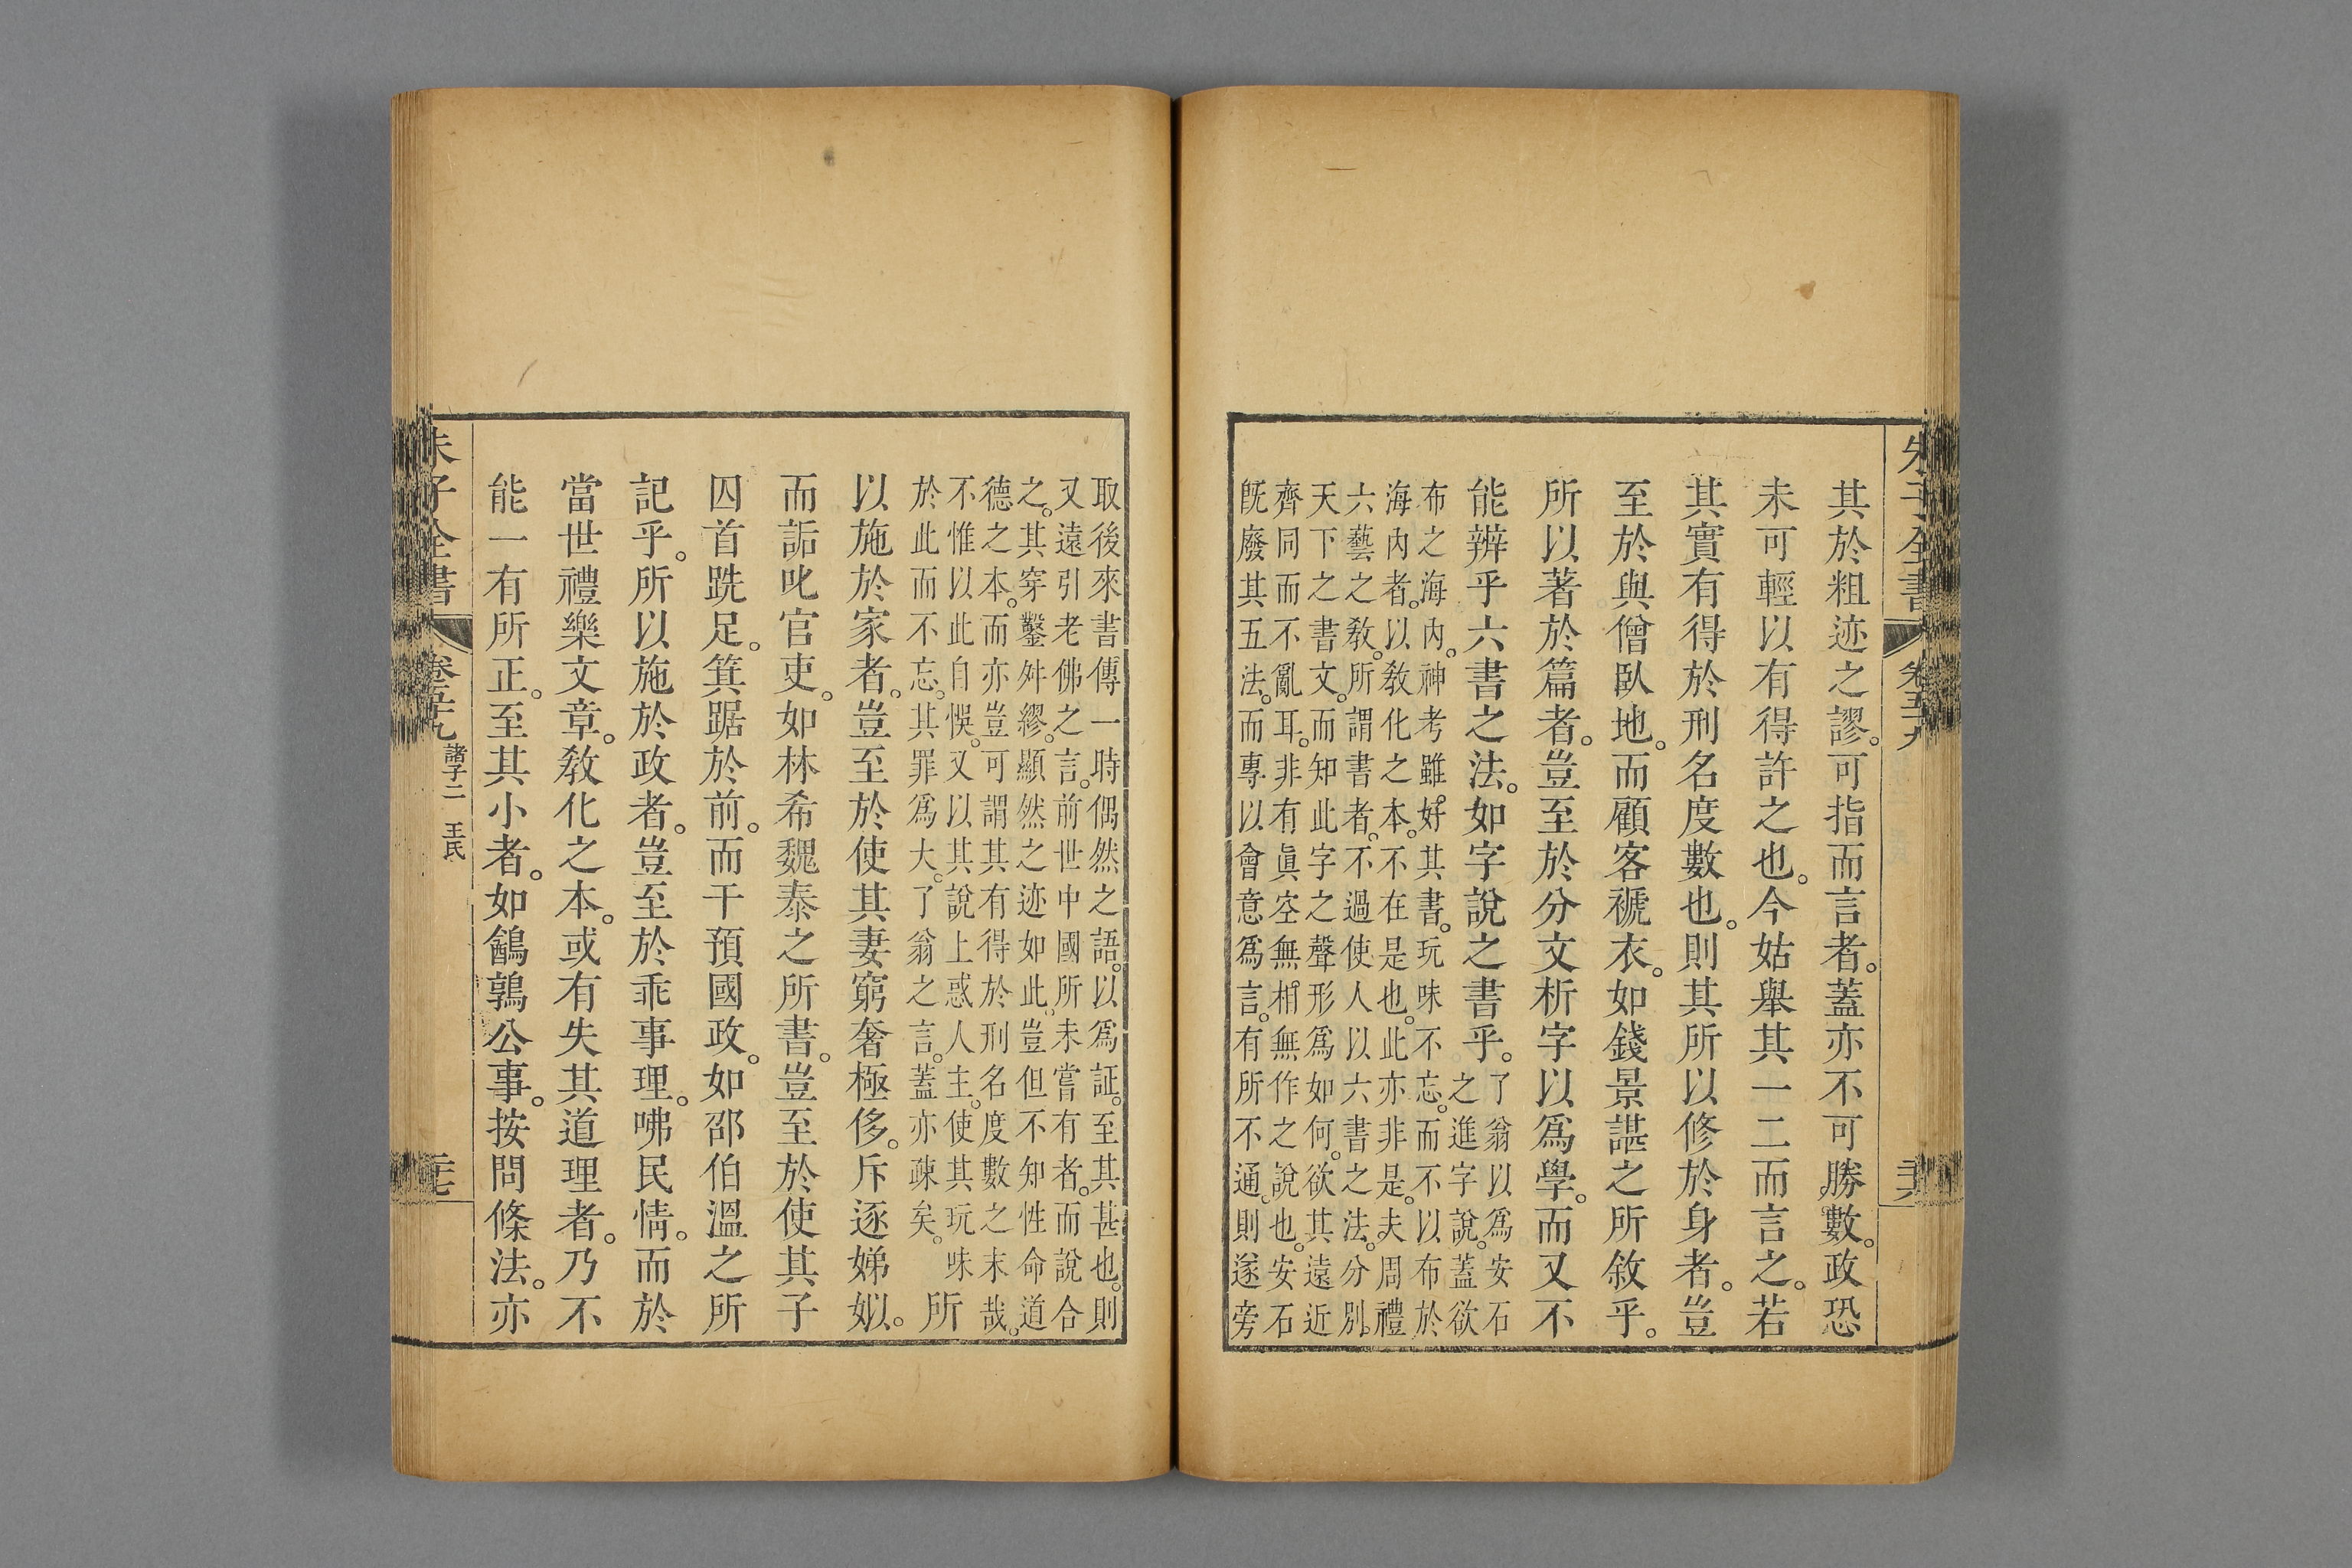 朱子全書 卷五十九
其於粗迹之謬。可指而言者。蓋亦不可勝數。政恐
未可輕以有得許之也。今姑舉其一二而言之。若
其實有得於刑名度數也。則其所以修於身者。豈
至於與僧臥地。而顧客褫衣。如錢景諶之所敘乎。
所以著於篇者。豈至於分文析字以爲學。而又不
能辨乎六書之法。如字說之書乎。
了翁以爲安石
之進字說。蓋欲
布之海內。神考雖好其書。玩味不忘。而不以布於
海內者。以敎化之本。不在是也。此亦非是。夫周禮
六藝之敎。所謂書者。不過使人以六書之法。分別
天下之書文。而知此字之聲形爲如何。欲其遠近
齊同而不亂耳。非有眞空無相無作之說也。安石
旣廢其五法。而專以會意爲言。有所不通。則遂旁
取後來書傳一時偶然之語。以爲証。至其甚也。則
又遠引老佛之言。前世中國所未嘗有者。而說合
之。其穿鑿舛繆。顯然之迹如此。豈但不知性命道
德之本。而亦豈可謂其有得於刑名度數之末哉。
不惟以此自悞。又以其說上惑人主。使其玩味
於此而不忘。其罪爲大。了翁之言。蓋亦疎矣。
所
以施於家者。豈至於使其妻窮奢極侈。斥逐娣姒。
而詬叱官吏。如林希魏泰之所書。豈至於使其子
囚首跣足。箕踞於前。而干預國政。如邵伯溫之所
記乎。所以施於政者。豈至於乖事理。咈民情。而於
當世禮樂文章。敎化之本。或有失其道理者。乃不
能一有所正。至其小者。如鬬鶉公事。按問條法。亦
朱子全書 卷五十九 諸子二 王氏